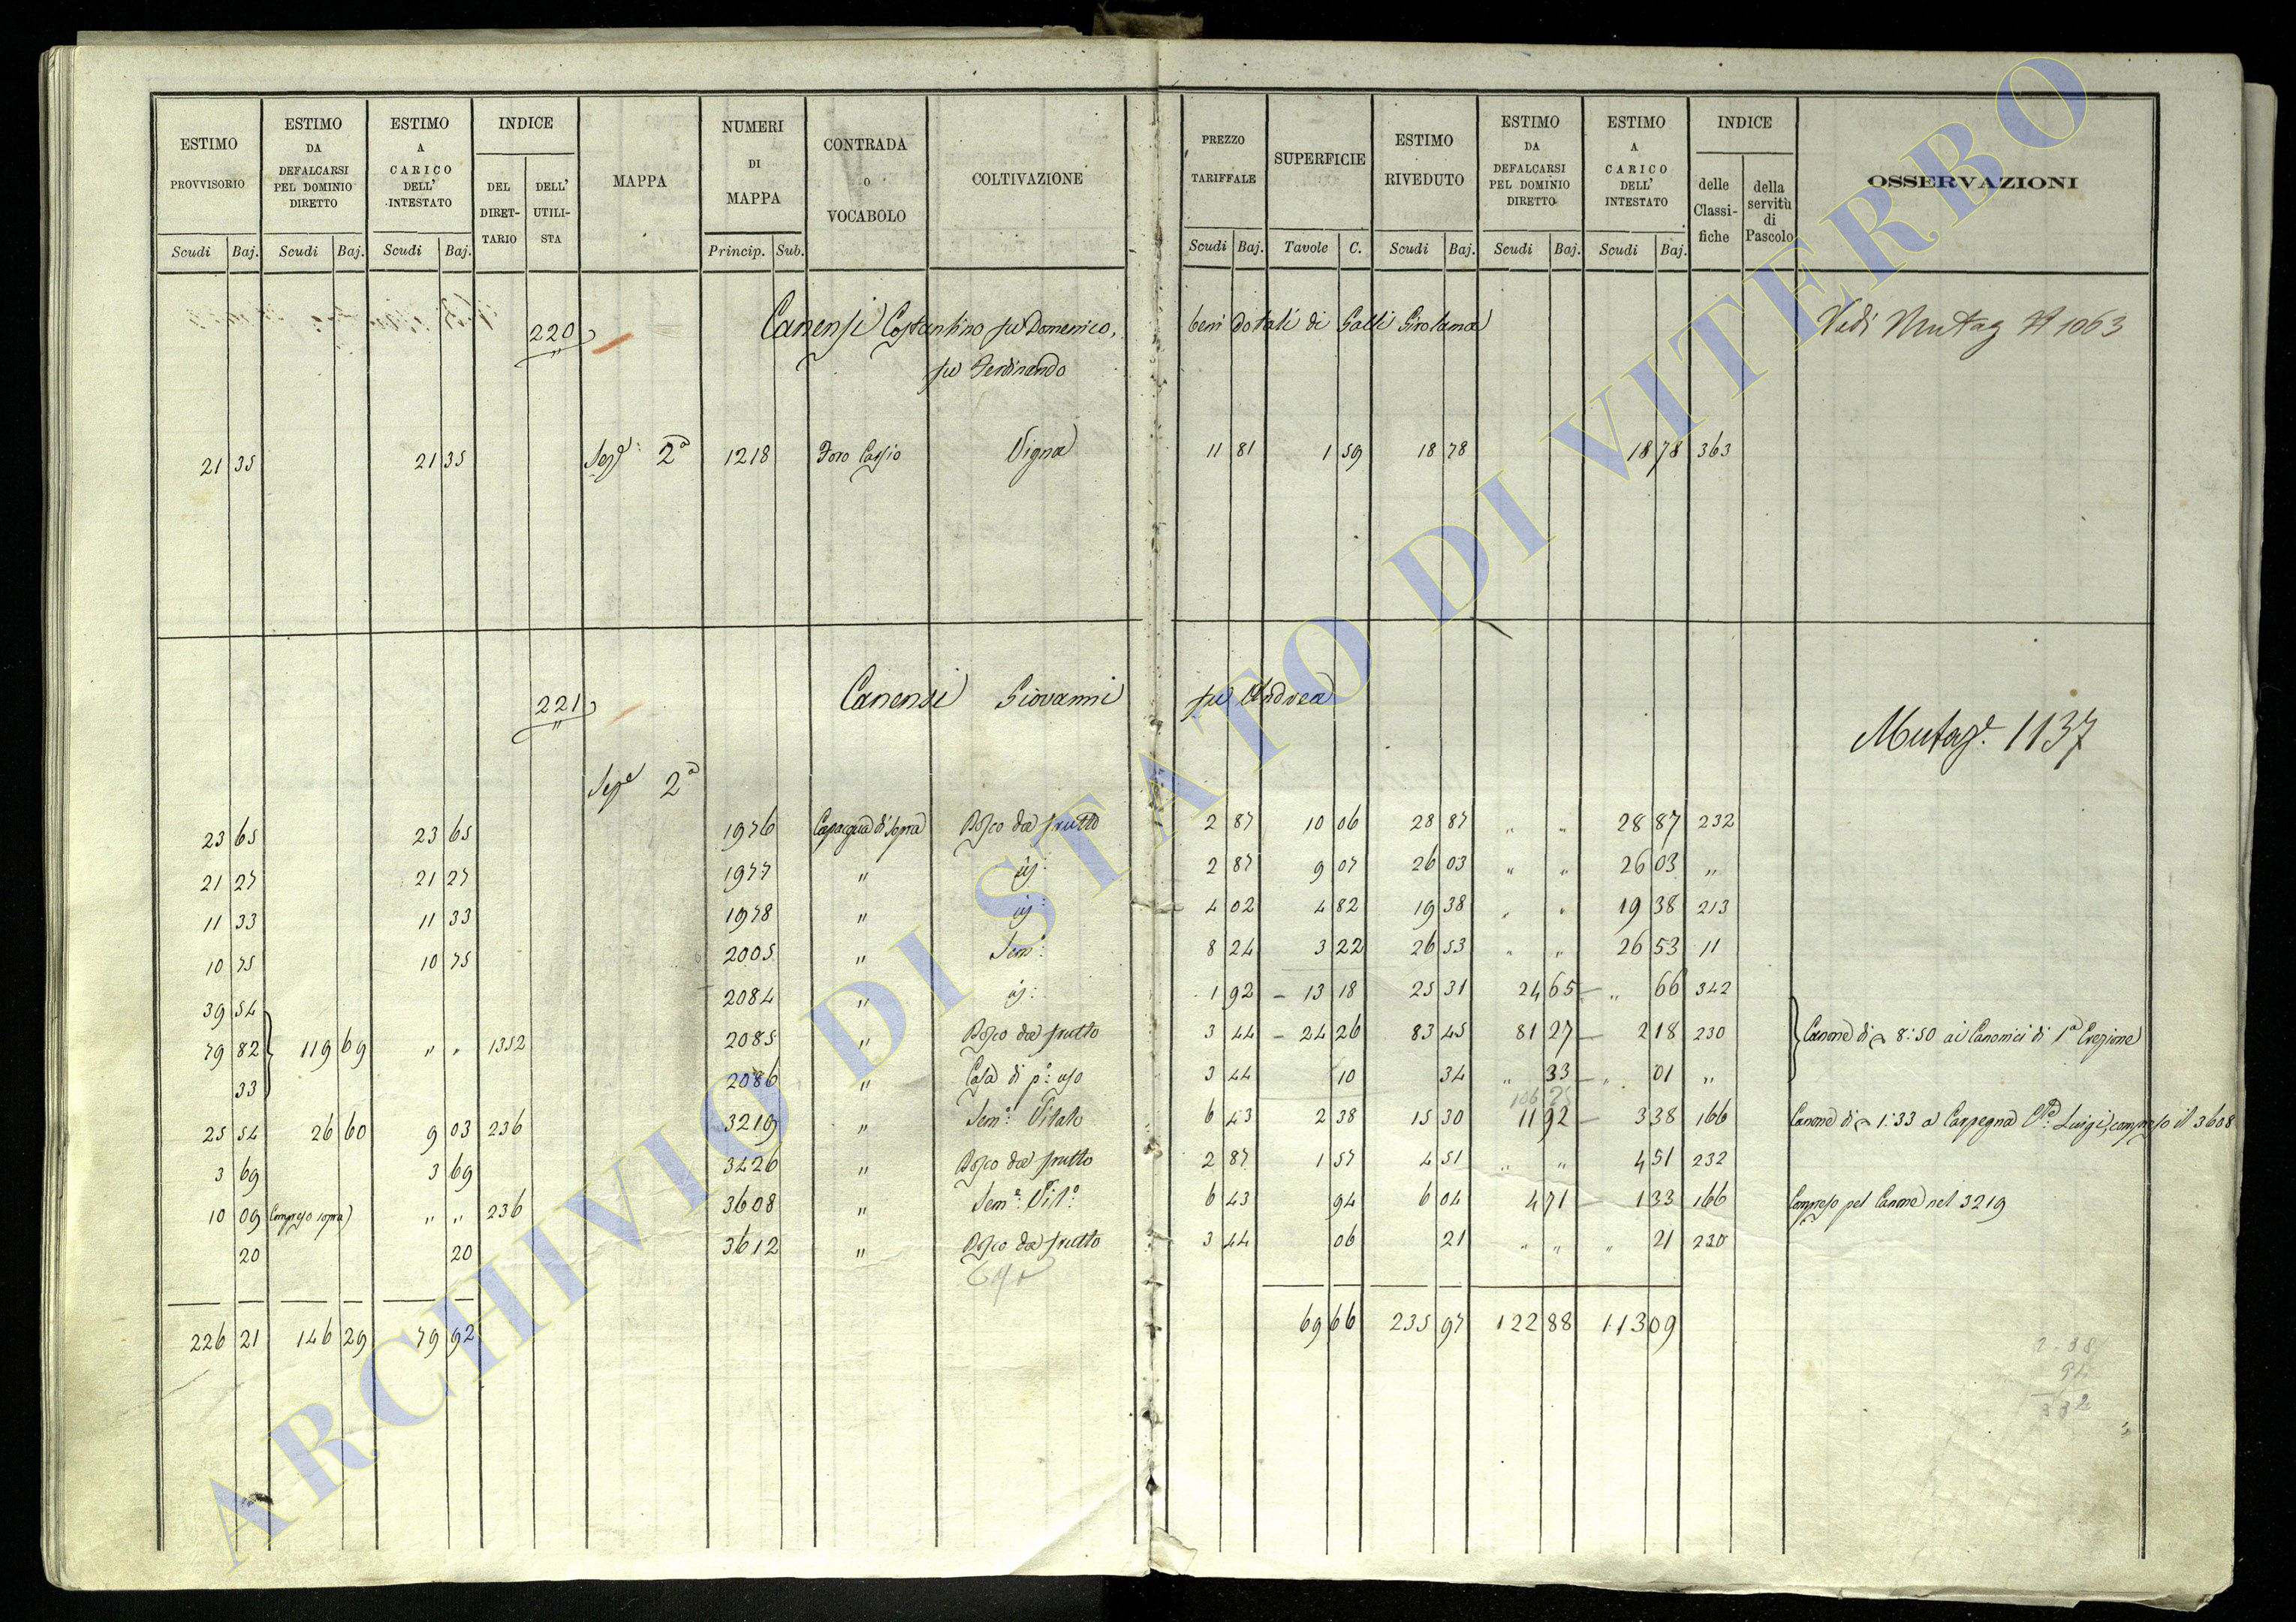 ESTIMO PROVVISORIO Scudi Baj.
ESTIMO DA DEFALCARSI PEL DOMINIO DIRETTO Scudi Baj.
ESTIMO A CARICO DELL' INTESTATO Scudi Baj.
INDICE DEL DIRET-TARIO DELL' UTILI-STA
MAPPA
NUMERI DI MAPPA Princip. Sub.
CONTRADA o VOCABOLO
COLTIVAZIONE
PREZZO TARIFFALE Scudi Baj.
SUPERFICIE Tavole C.
ESTIMO RIVEDUTO Scudi Baj.
ESTIMO DA DEFALCARSI PEL DOMINIO DIRETTO Scudi Baj.
ESTIMO A CARICO DELL' INTESTATO Scudi Baj.
INDICE delle Classi-fiche della servitù di Pascolo
OSSERVAZIONI
220 Canensi Costantino fu Domenico, beni dotali di Galli Girolama Vedi Mutaz N 1063
fu Ferdinando
21 35 21 35 Seze 2a 1218 Foro Cassio Vigna 11 81 1 59 18 78 18 78 363
221 Canensi Giovanni fu Andrea
Mutaze. 1137
Seze 2a
23 65 23 65 1976 Capacqua di sopra Bosco da frutto 2 87 10 06 28 87 " " 28 87 232
21 27 21 27 1977 " id: 2 87 9 07 26 03 " " 26 03 "
11 33 11 33 1978 " id: 4 02 4 82 19 38 " " 19 38 213
10 75 10 75 2005 " Sem: 8 24 3 22 26 53 " " 26 53 11
39 54 2084 " id: 1 92 – 13 18 25 31 24 65 – " 66 342
79 82 119 69 " " 1352 2085 " Bosco da frutto 3 44 – 24 26 83 45 81 27 – 2 18 230 Canone di 8:50 ai Canonici di 1a Erezione
33 2086 " Casa di p: uso 3 44 10 34 " 33 – " 01 "
106 25
25 54 26 60 9 03 236 3219 " Sem: Vitato 6 43 2 38 15 30 11 92 – 3 38 166 Canone di 1:33 a Carpegna Cte: Luigi, compreso il 3608
3 69 3 69 3426 " Bosco da frutto 2 87 1 57 4 51 " " 4 51 232
10 09 Compreso sopra " " 236 3608 " Sem: Vito: 6 43 94 6 04 4 71 – 1 33 166 Compreso pel Canone nel 3219
20 20 3612 " Bosco da frutto 3 44 06 21 " " " 21 230
226 21 146 29 79 92 69 66 235 97 122 88 113 09
2.38
94
332
ARCHIVIO DI STATO DI VITERBO